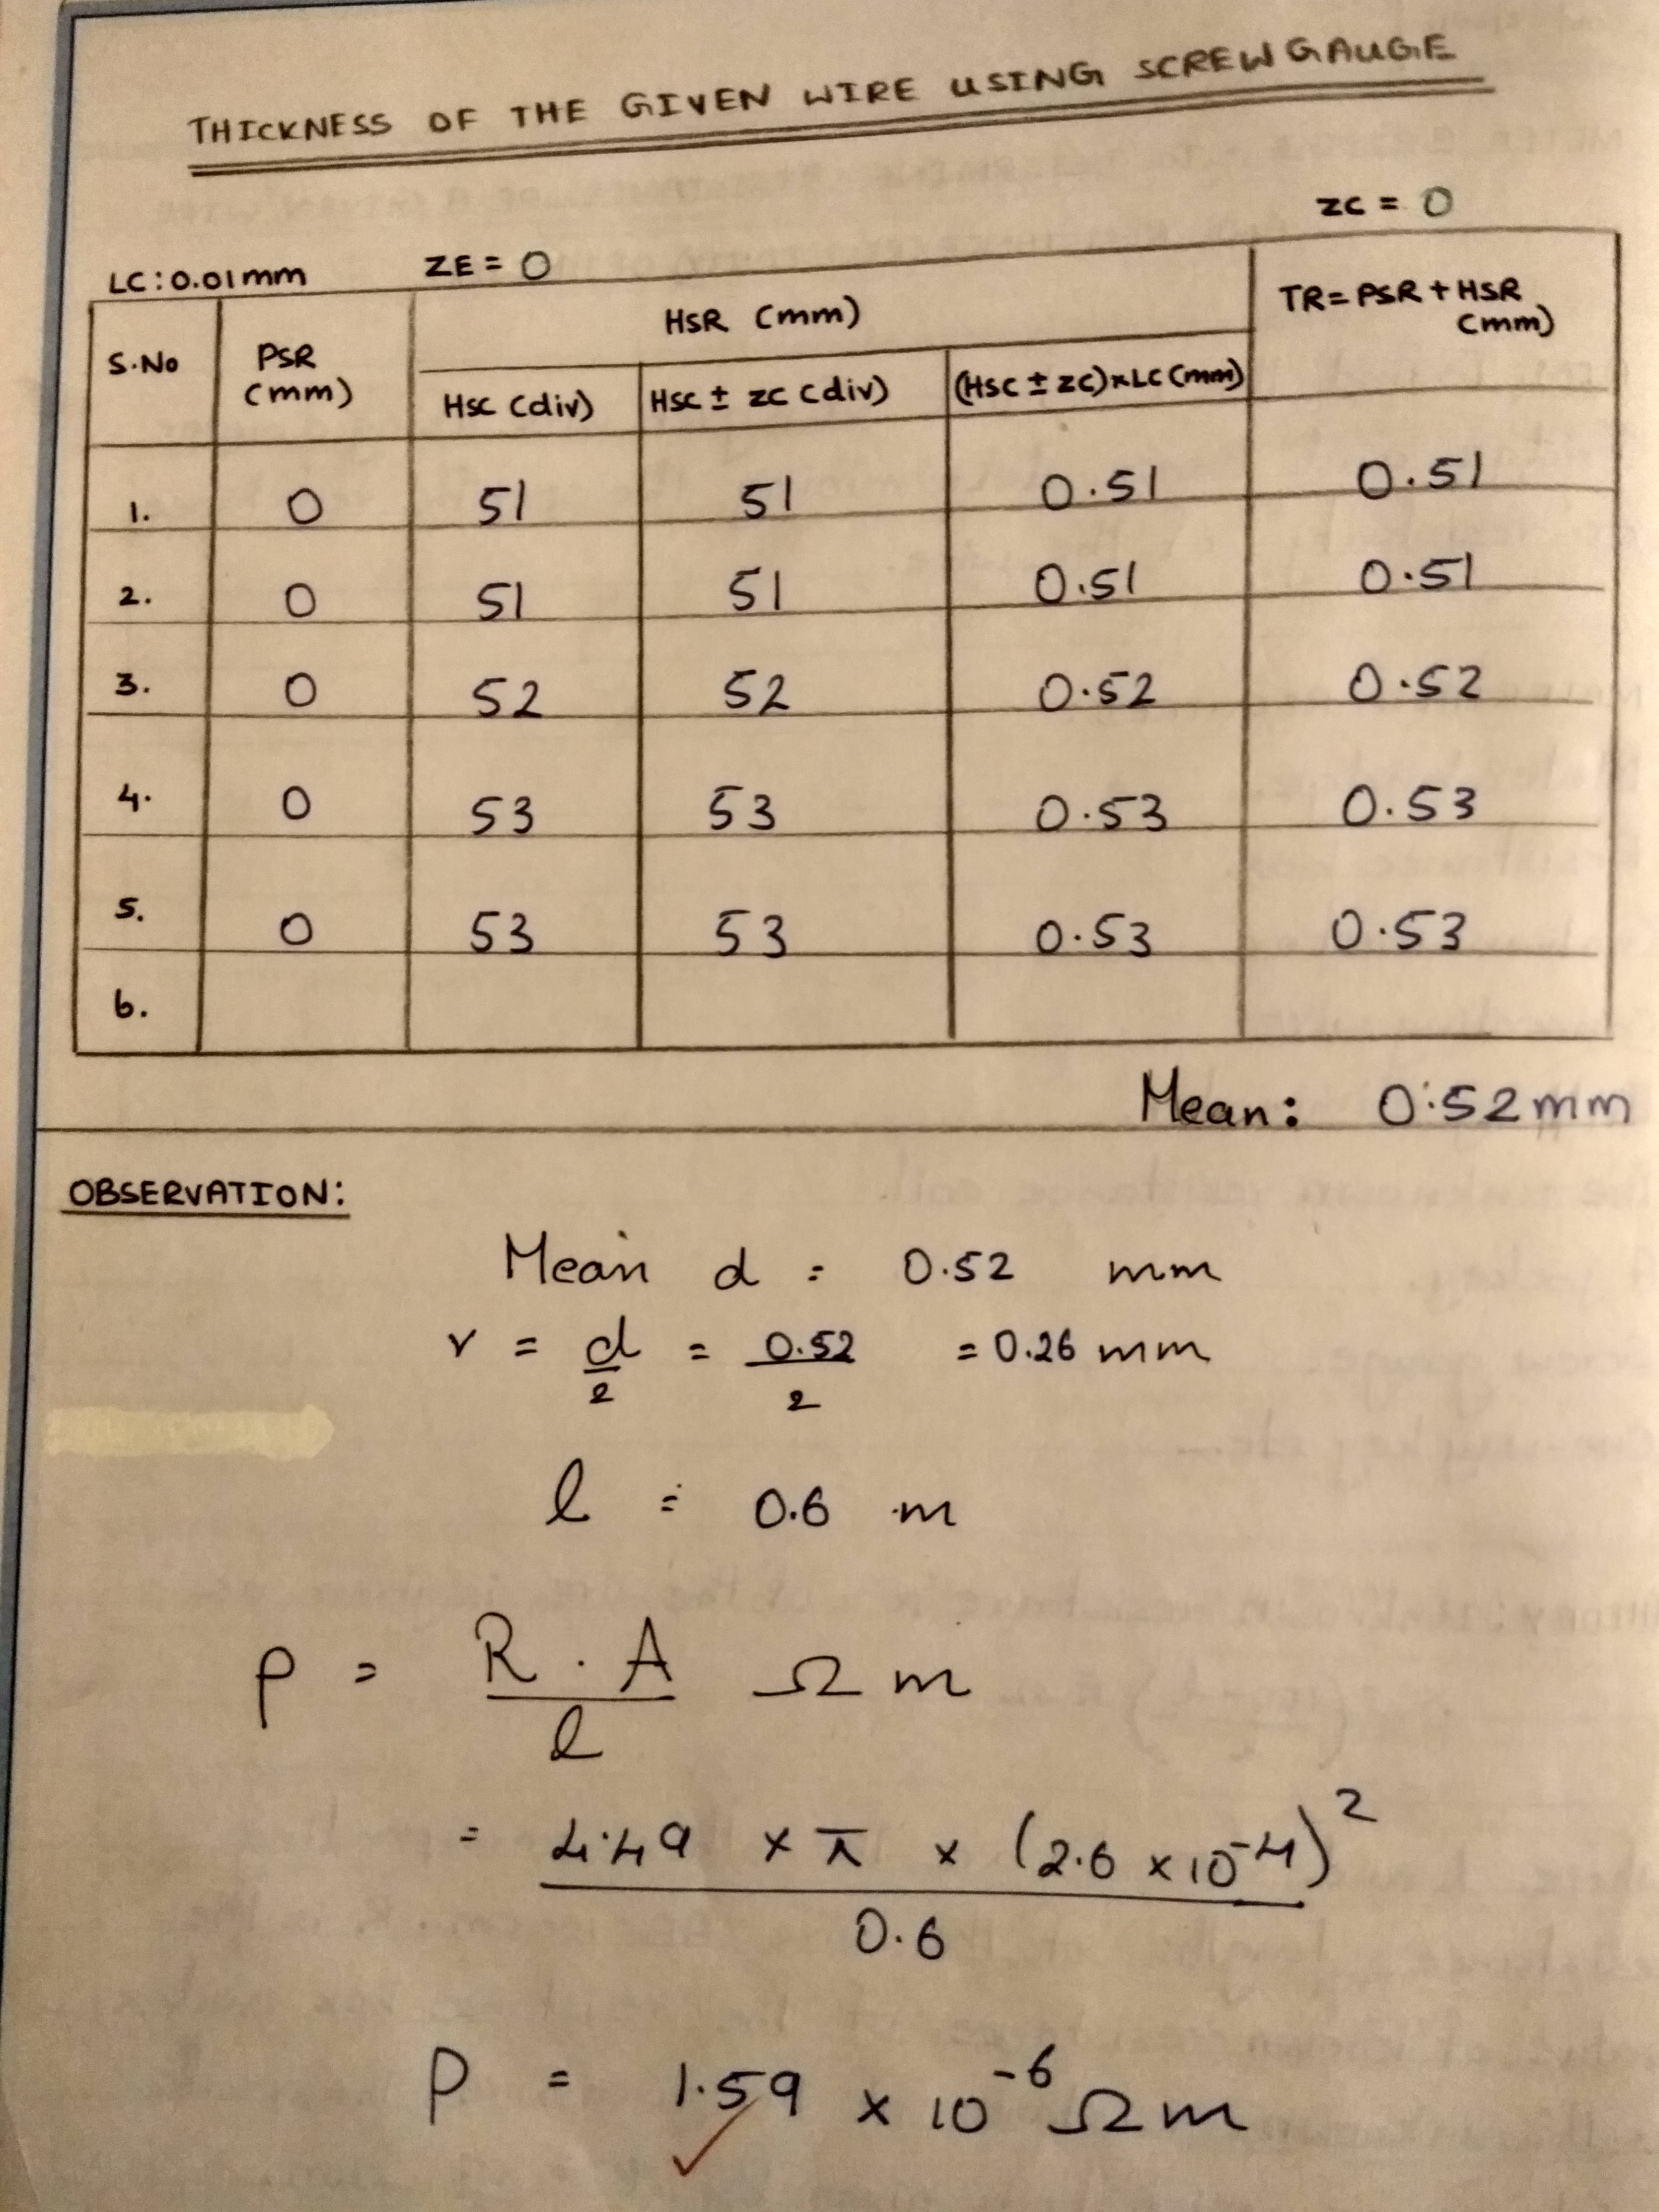 THICKNESS OF THE GIVEN WIRE USING SCREW GAUGE
ZC = 0
LC: 0.01mm ZE = 0
S.No PSR (mm) HSR (mm) TR = PSR + HSR (mm)
HSC (div) HSC ± ZC (div) (HSC ± ZC) × LC (mm)
1. 0 51 51 0.51 0.51
2. 0 51 51 0.51 0.51
3. 0 52 52 0.52 0.52
4. 0 53 53 0.53 0.53
5. 0 53 53 0.53 0.53
6.
Mean: 0.52mm
OBSERVATION:
Mean d = 0.52 mm
r = d/2 = 0.52/2 = 0.26 mm
l = 0.6 m
ρ = R . A / l Ω m
= 4.49 × π × (2.6 × 10⁻⁴)² / 0.6
ρ = 1.59 × 10⁻⁶ Ω m